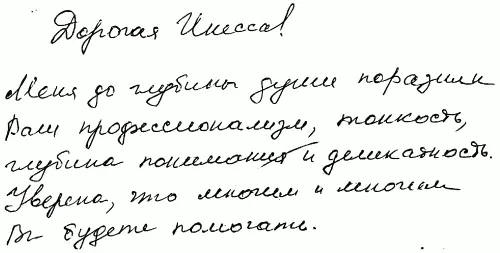 Дорогая Инесса!
Меня до глубины души поразили
Ваш профессионализм, тонкость,
глубина понимания и деликатность.
Уверена, что многим и многим
Вы будете помогать.